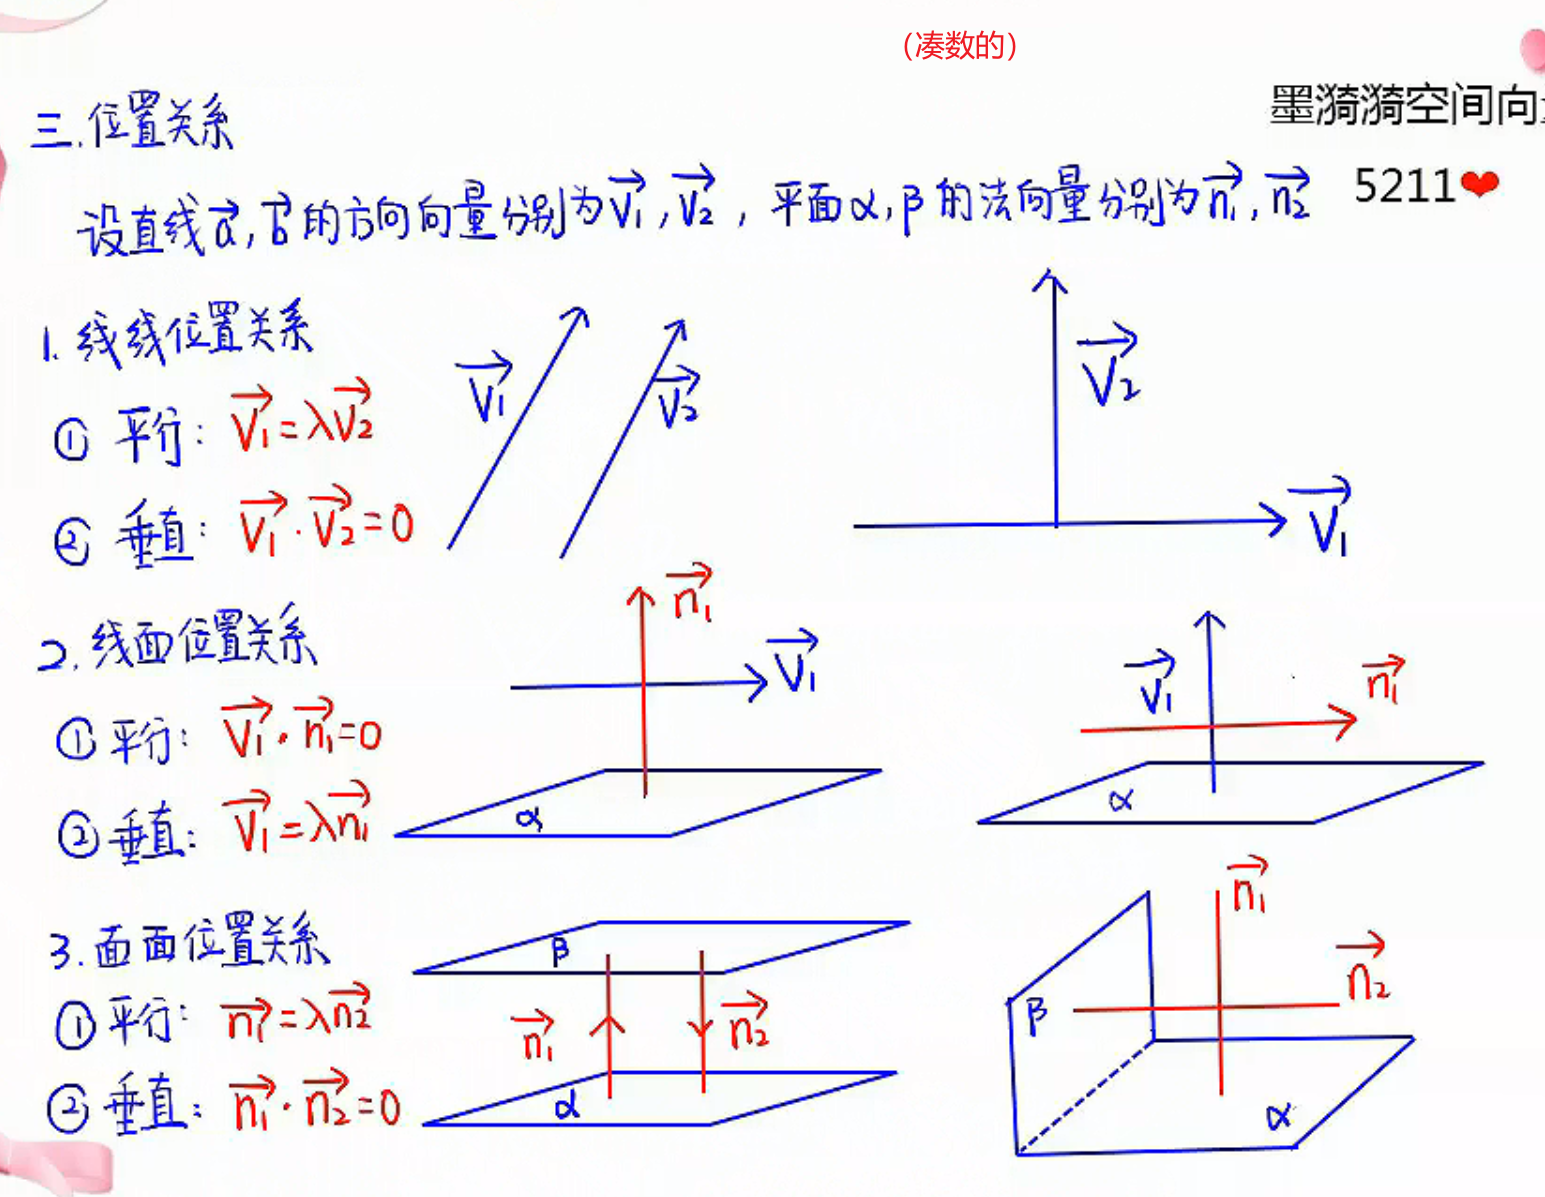 （凑数的）
墨漪漪空间向
5211❤
三.位置关系
设直线a⃗,b⃗的方向向量分别为v⃗₁,v⃗₂，平面α,β的法向量分别为n⃗₁,n⃗₂
1.线线位置关系
①平行：v⃗₁=λv⃗₂
②垂直：v⃗₁·v⃗₂=0
v⃗₁
v⃗₂
v⃗₂
v⃗₁
2.线面位置关系
①平行：v⃗₁·n⃗₁=0
②垂直：v⃗₁=λn⃗₁
n⃗₁
v⃗₁
α
v⃗₁
n⃗₁
α
3.面面位置关系
①平行：n⃗₁=λn⃗₂
②垂直：n⃗₁·n⃗₂=0
β
n⃗₁
n⃗₂
α
n⃗₁
n⃗₂
β
α